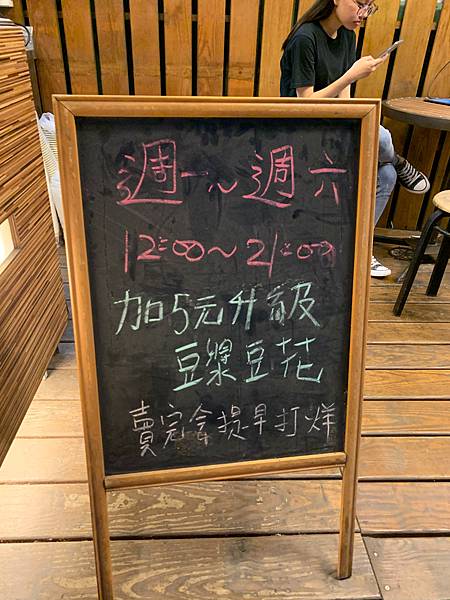 週一~週六
12:00~21:00
加5元升級
豆漿豆花
賣完會提早打烊